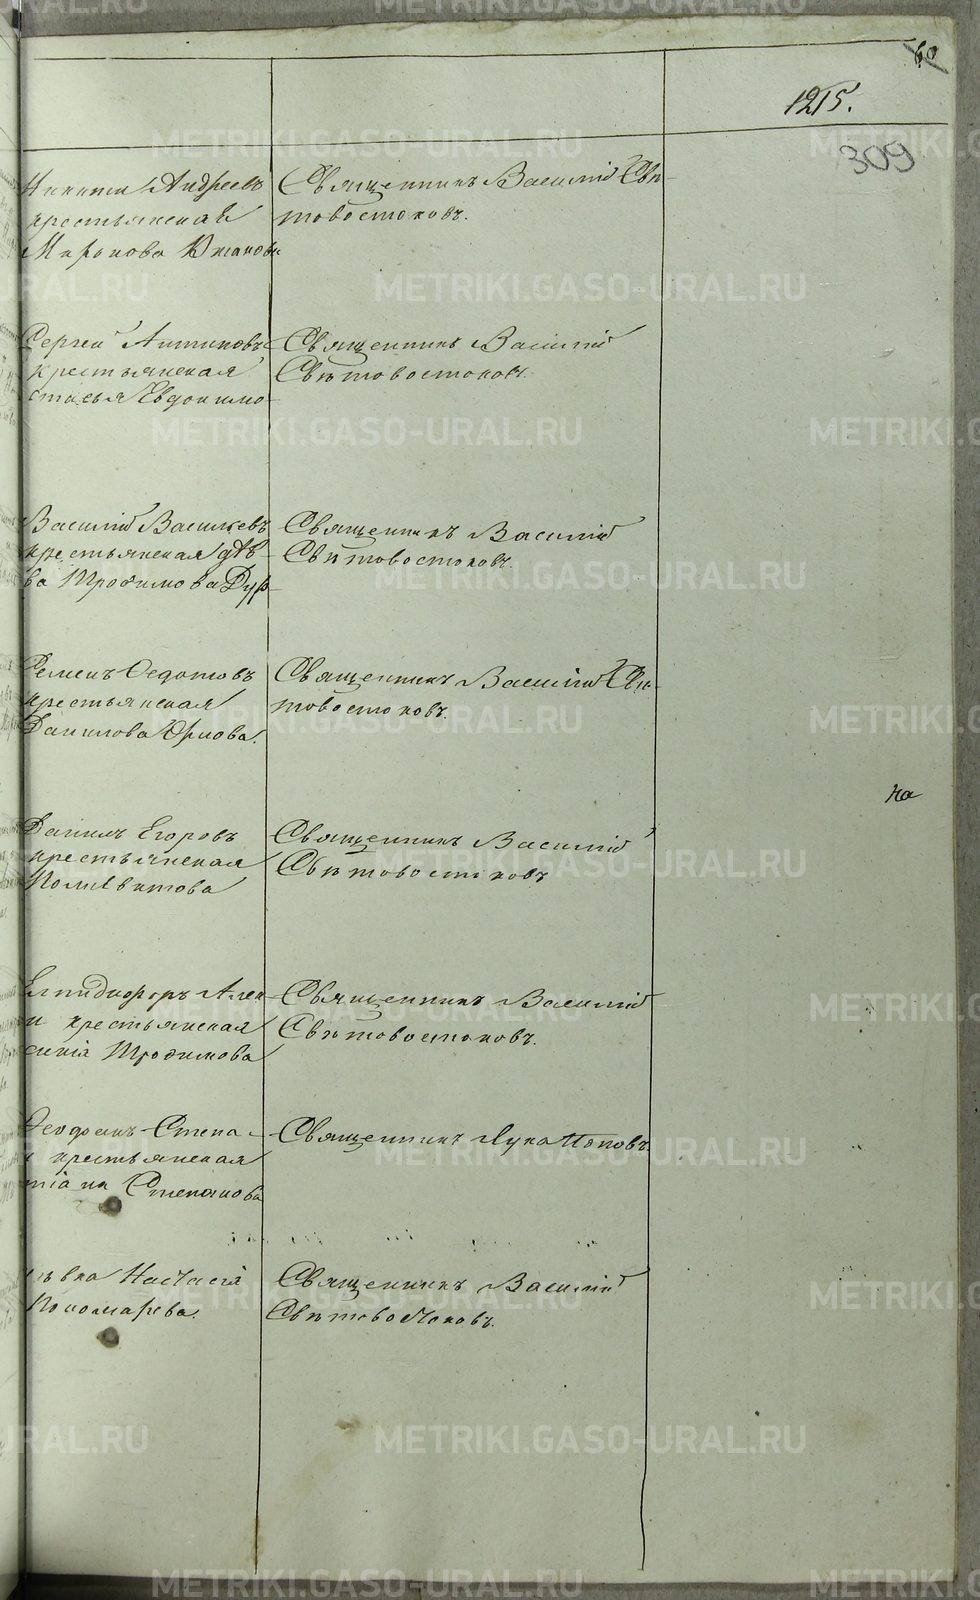 60
1215.
309
Никита Андреевъ
крестьянская
Миронова Южакова
Священникъ Василій Свѣ-
товостоковъ.
Сергей Антиповъ
крестьянская
стасья Евдокимо-
Священникъ Василій
Свѣтовостоковъ.
Василій Васильевъ
крестьянская дѣв-
ва Трофимова Дур-
Священникъ Василій
Свѣтовостоковъ.
Семенъ Федотовъ
крестьянская
Данилова Орлова.
Священникъ Василій Свѣ-
товостоковъ.
на
Данилъ Егоровъ
крестьянская
Поливитова
Священникъ Василій
Свѣтовостоковъ
Елпидифоръ Алек-
и крестьянская
синія Трофимова
Священникъ Василій
Свѣтовостоковъ.
Феодосій Степа-
крестьянская
Степанова
Священникъ Лука Поповъ.
ѣвка Настасія
Пономарева.
Священникъ Василій
Свѣтовостоковъ.
METRIKI.GASO-URAL.RU